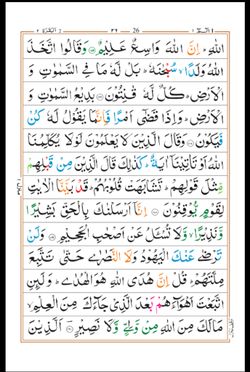 الٓمّٓ ١ 26 البقرة ٢
اللهِ ؕ اِنَّ اللهَ وَاسِعٌ عَلِيْمٌ ۝ وَقَالُوا اتَّخَذَ
اللهُ وَلَدًا ۙ سُبْحٰنَهٗ ؕ بَلْ لَّهٗ مَا فِى السَّمٰوٰتِ وَ
الْاَرْضِ ؕ كُلٌّ لَّهٗ قٰنِتُوْنَ ۝ بَدِيْعُ السَّمٰوٰتِ وَ
الْاَرْضِ ؕ وَاِذَا قَضٰٓى اَمْرًا فَاِنَّمَا يَقُوْلُ لَهٗ كُنْ
فَيَكُوْنُ ۝ وَقَالَ الَّذِيْنَ لَا يَعْلَمُوْنَ لَوْلَا يُكَلِّمُنَا
اللهُ اَوْ تَاْتِيْنَآ اٰيَةٌ ؕ كَذٰلِكَ قَالَ الَّذِيْنَ مِنْ قَبْلِهِمْ
مِّثْلَ قَوْلِهِمْ ؕ تَشَابَهَتْ قُلُوْبُهُمْ ؕ قَدْ بَيَّنَّا الْاٰيٰتِ
لِقَوْمٍ يُّوْقِنُوْنَ ۝ اِنَّآ اَرْسَلْنٰكَ بِالْحَقِّ بَشِيْرًا
وَّنَذِيْرًا ۙ وَّلَا تُسْـَٔلُ عَنْ اَصْحٰبِ الْجَحِيْمِ ۝ وَلَنْ
تَرْضٰى عَنْكَ الْيَهُوْدُ وَلَا النَّصٰرٰى حَتّٰى تَتَّبِعَ
مِلَّتَهُمْ ؕ قُلْ اِنَّ هُدَى اللهِ هُوَ الْهُدٰى ؕ وَلَئِنِ
اتَّبَعْتَ اَهْوَآءَهُمْ بَعْدَ الَّذِىْ جَآءَكَ مِنَ الْعِلْمِ ۙ
مَا لَكَ مِنَ اللهِ مِنْ وَّلِىٍّ وَّلَا نَصِيْرٍ ۝ اَلَّذِيْنَ